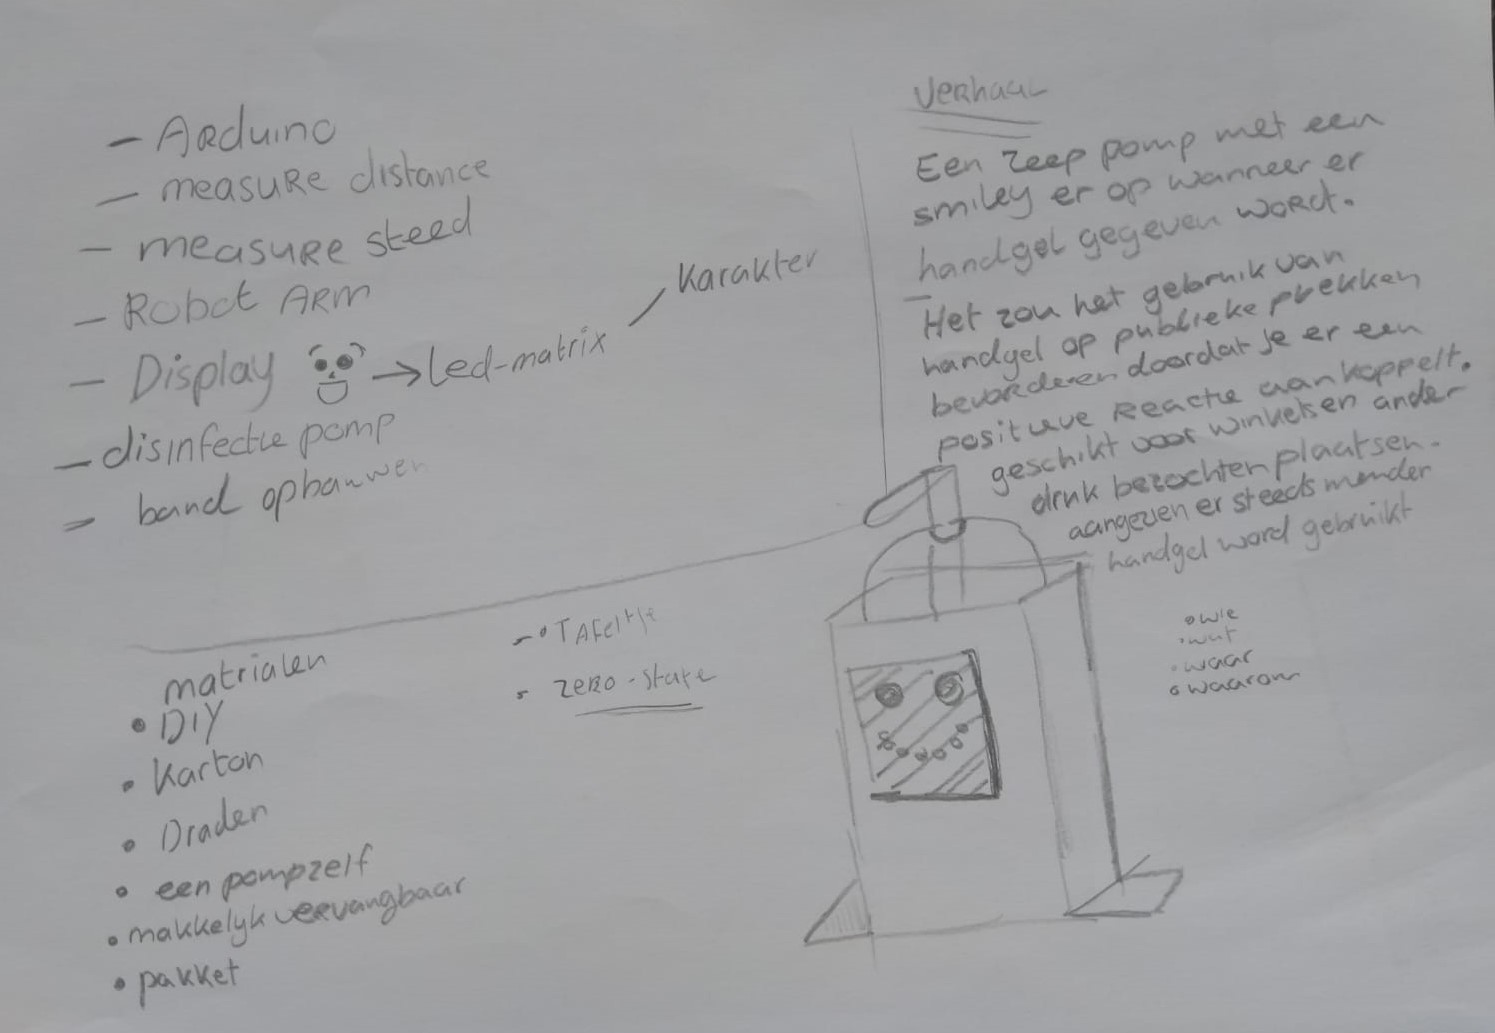 - Arduino
- measure distance
- measure steed
- Robot ARM
- Display → Led-matrix
Karakter
- disinfectie pomp
- band opbouwen
Verhaal
Een zeep pomp met een
smiley er op wanneer er
handgel gegeven word.
Het zou het gebruik van
handgel op publieke plekken
bevorderen doordat je er een
positieve Reactie aan koppelt.
geschikt voor winkels en ander
druk bezochten plaatsen.
aangezien er steeds minder
handgel word gebruikt
• wie
• wat
• waar
• waarom
- • TAFeltje
• zero-state
matrialen
• DIY
• Karton
• Draden
• een pomp zelf
• makkelyk vervangbaar
• pakket